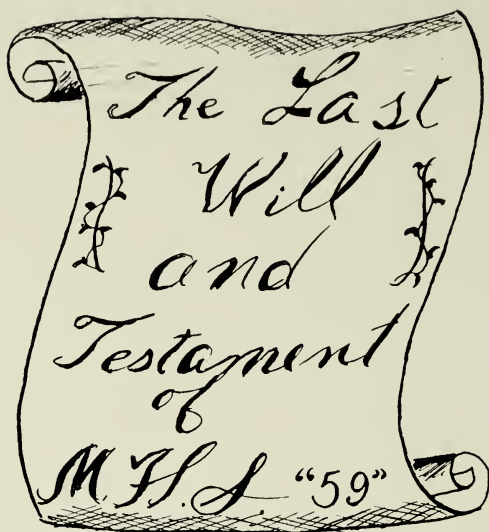 The Last
Will
and
Testament
of
M.H.S. "59"